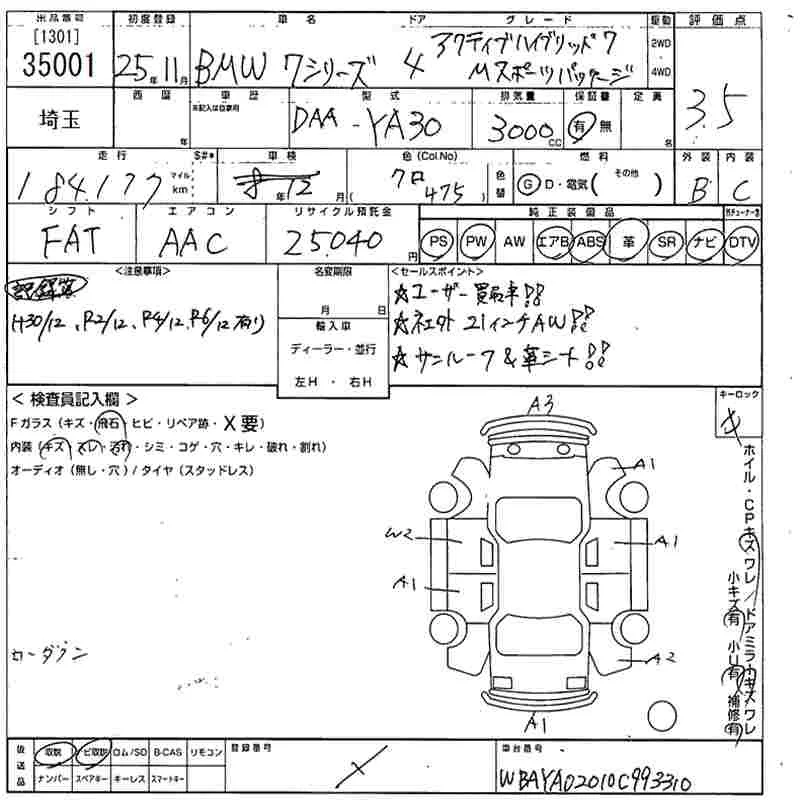 出品番号 初度登録 車名 ドア グレード 駆動 評価点
[1301]
35001 25年11月 BMW 7シリーズ 4 アクティブハイブリッド7 Mスポーツパッケージ 2WD・4WD
3.5
西暦 車歴 型式 排気量 保証書 定員
埼玉 年 ※記入は自家用 DAA-YA30 3000cc 有 無 名
走行 S#* 車検 色(Col No) 燃料 外装 内装
184,177 マイル km 8年12月 クロ 475 色替 G D・電気( その他 ) B C
シフト エアコン リサイクル預託金 純正装備品
FAT AAC 25,040円 PS PW AW エアB ABS 革 SR ナビ DTV
<注意事項> 名変期限 <セールスポイント>
記録簿
H30/12、R2/12、R4/12、R6/12有り)
月 日
輸入車
ディーラー・並行
左H・右H
☆ユーザー買取車!!
☆社外21インチAW!!
☆サンルーフ&革シート!!
<検査員記入欄> キーロック
Fガラス(キズ・飛石・ヒビ・リペア跡・X要)
内装(キズ・スレ・汚れ・シミ・コゲ・穴・キレ・破れ・割れ)
オーディオ(無し・穴)/タイヤ(スタッドレス)
A3
A1
W2
A1
A1
A2
A1
ローダウン
ホイル・CPキズワレ/ドアミラーキズワレ
小キズ有 小U有 補修有
後送品 取説 ナビ取説 ロム/SD B-CAS リモコン 登録番号 車台番号
ナンバー スペアキー キーレス スマートキー
WBAYA02010C993310